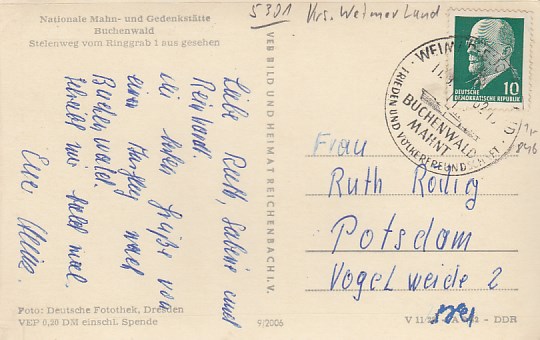 Nationale Mahn- und Gedenkstätte
Buchenwald
Stelenweg vom Ringgrab 1 aus gesehen
5301 Krs. Weimar Land
Liebe Ruth, Sabine und
Reinhard.
Die besten Grüße von
einem Ausflug nach
Buchenwald.
Schreibt mir bald mal.
Eure
VEB BILD UND HEIMAT REICHENBACH I. V.
WEIMAR
BUCHENWALD
MAHNT
FRIEDEN UND VÖLKERFREUNDSCHAFT
DEUTSCHE
DEMOKRATISCHE REPUBLIK
10
846
Frau
Ruth Rödig
Potsdam
Vogelweide 2
Foto: Deutsche Fotothek, Dresden
VEP 0,20 DM einschl. Spende
9/2006
V 11 DDR